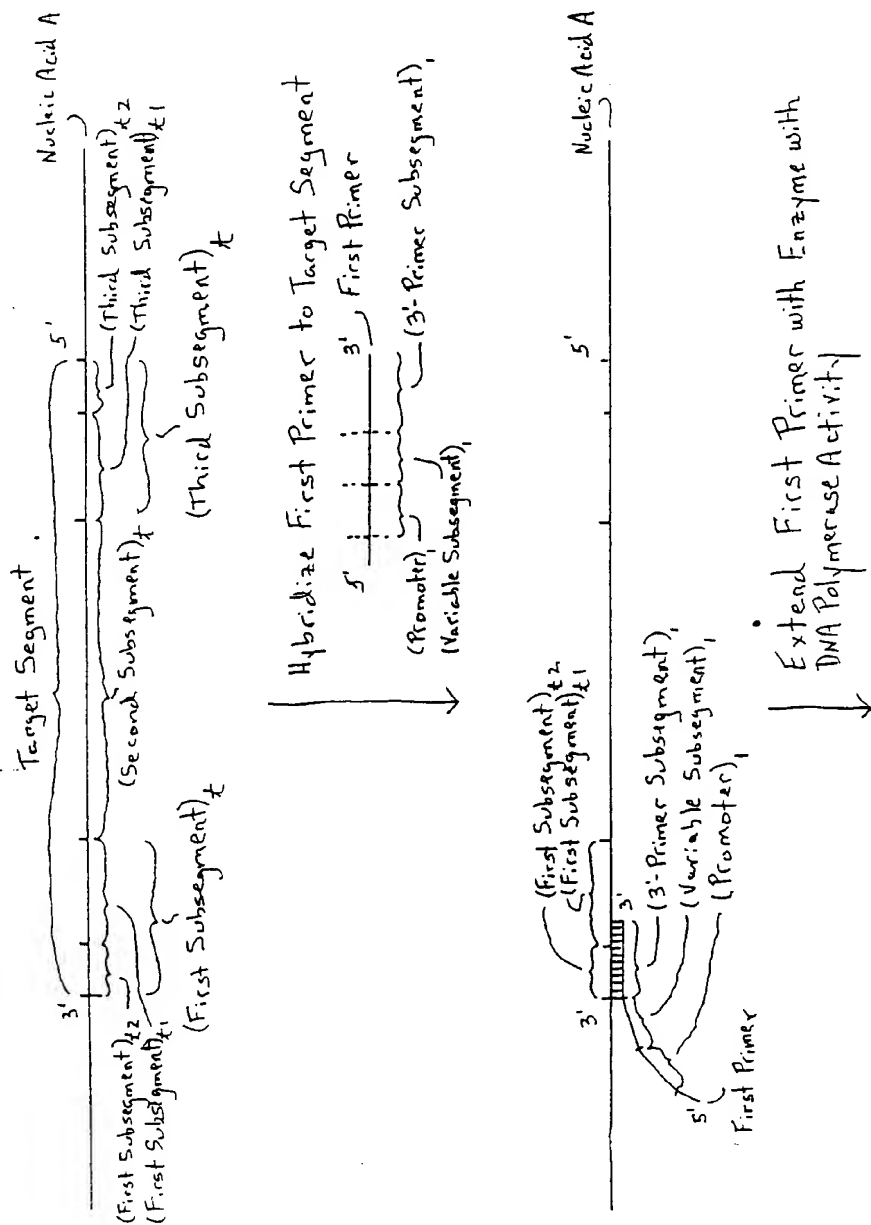 Target Segment.
Nucleic Acid A
3'
5'
(First Subsegment)t2
(First Subsegment)t1
(First Subsegment)t
(Second Subsegment)t
(Third Subsegment)t2
(Third Subsegment)t1
(Third Subsegment)t
Hybridize First Primer to Target Segment
5'
3'
First Primer
(Promoter)1
(Variable Subsegment)1
(3'-Primer Subsegment)1
(First Subsegment)t2
(First Subsegment)t1
Nucleic Acid A
3'
5'
3'
(3'-Primer Subsegment)1
(Variable Subsegment)1
(Promoter)1
5'
First Primer
Extend First Primer with Enzyme with
DNA Polymerase Activity